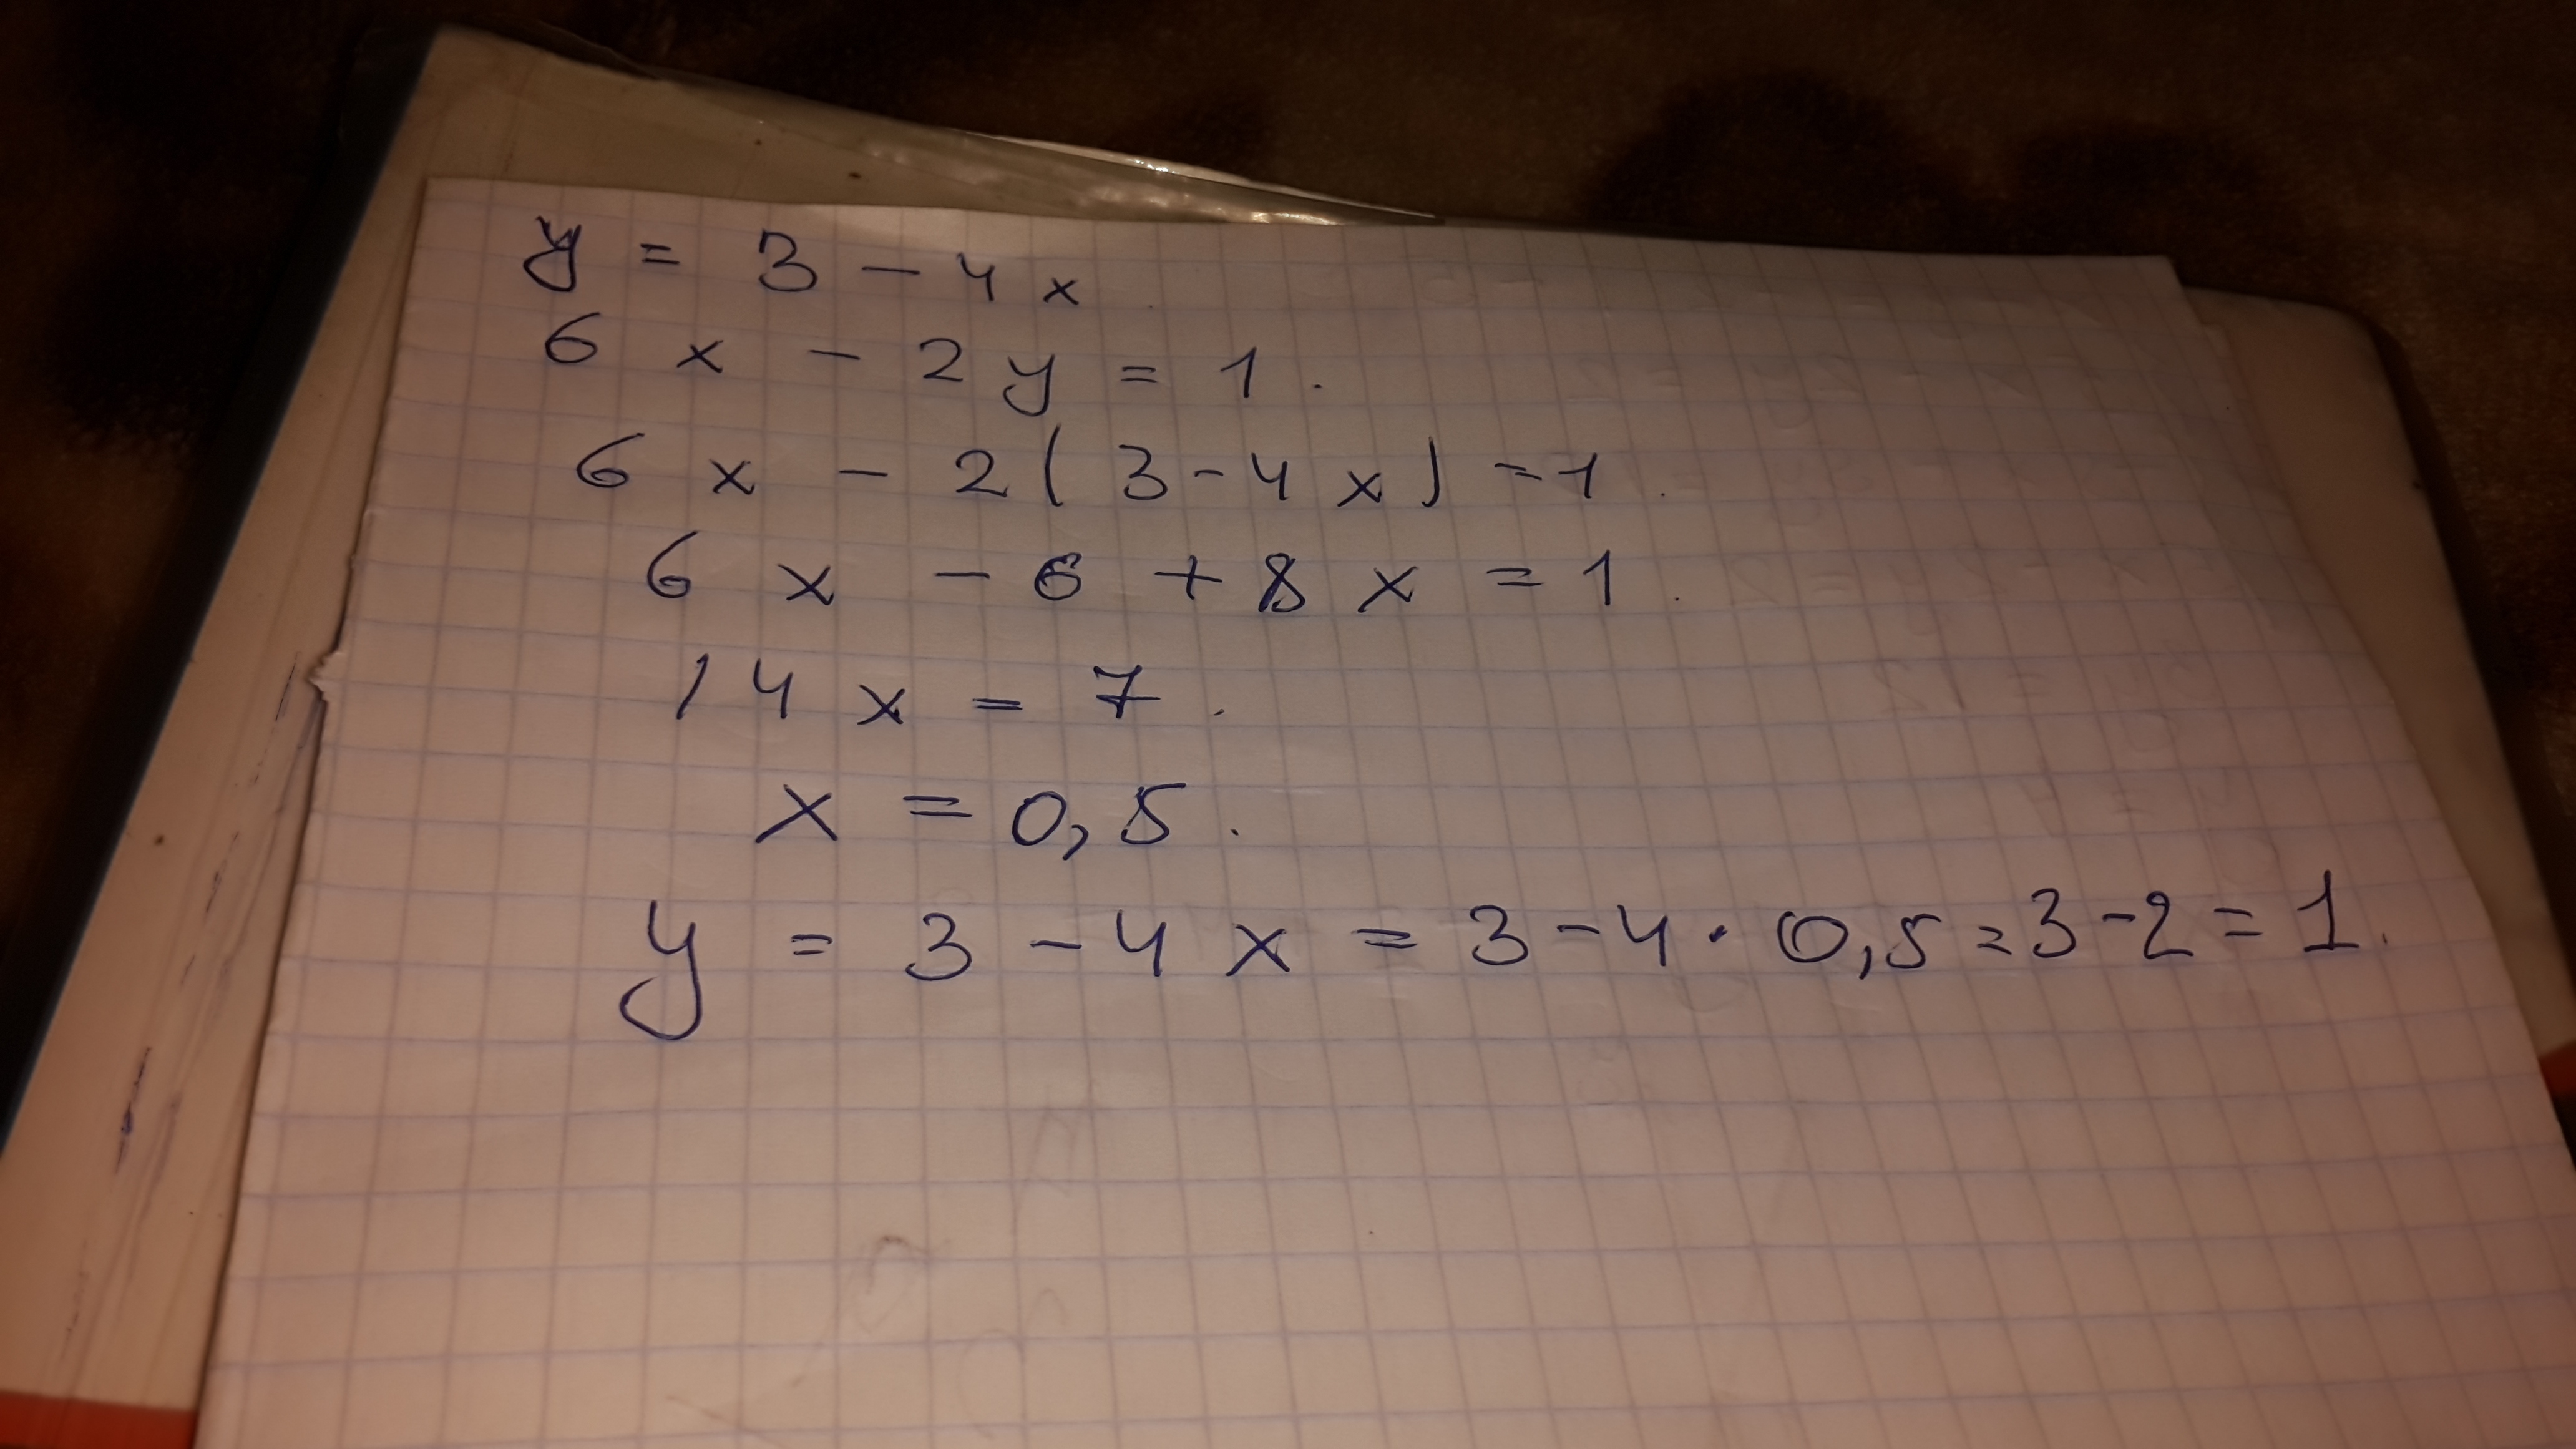 y = 3 - 4x
6x - 2y = 1.
6x - 2(3-4x) = 1.
6x - 6 + 8x = 1.
14x = 7.
x = 0,5.
y = 3 - 4x = 3 - 4 · 0,5 = 3 - 2 = 1.